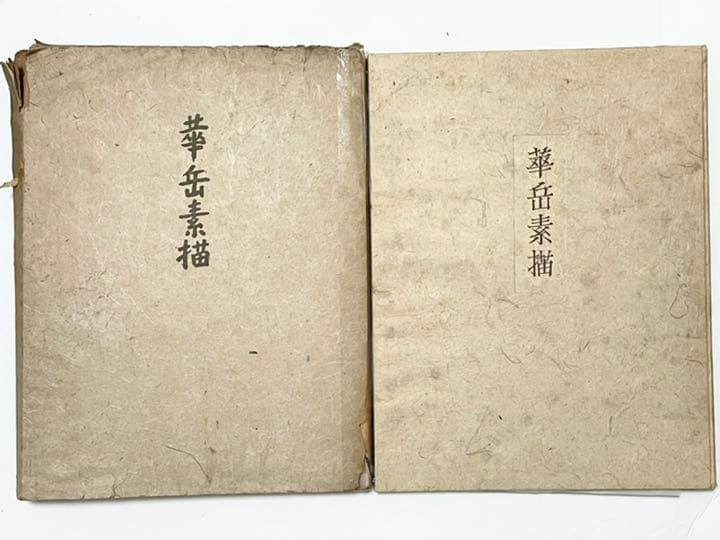 華岳素描
華岳素描